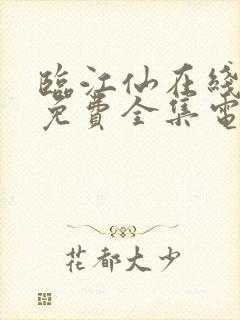 臨江仙在綫
免費全集電
花都大少